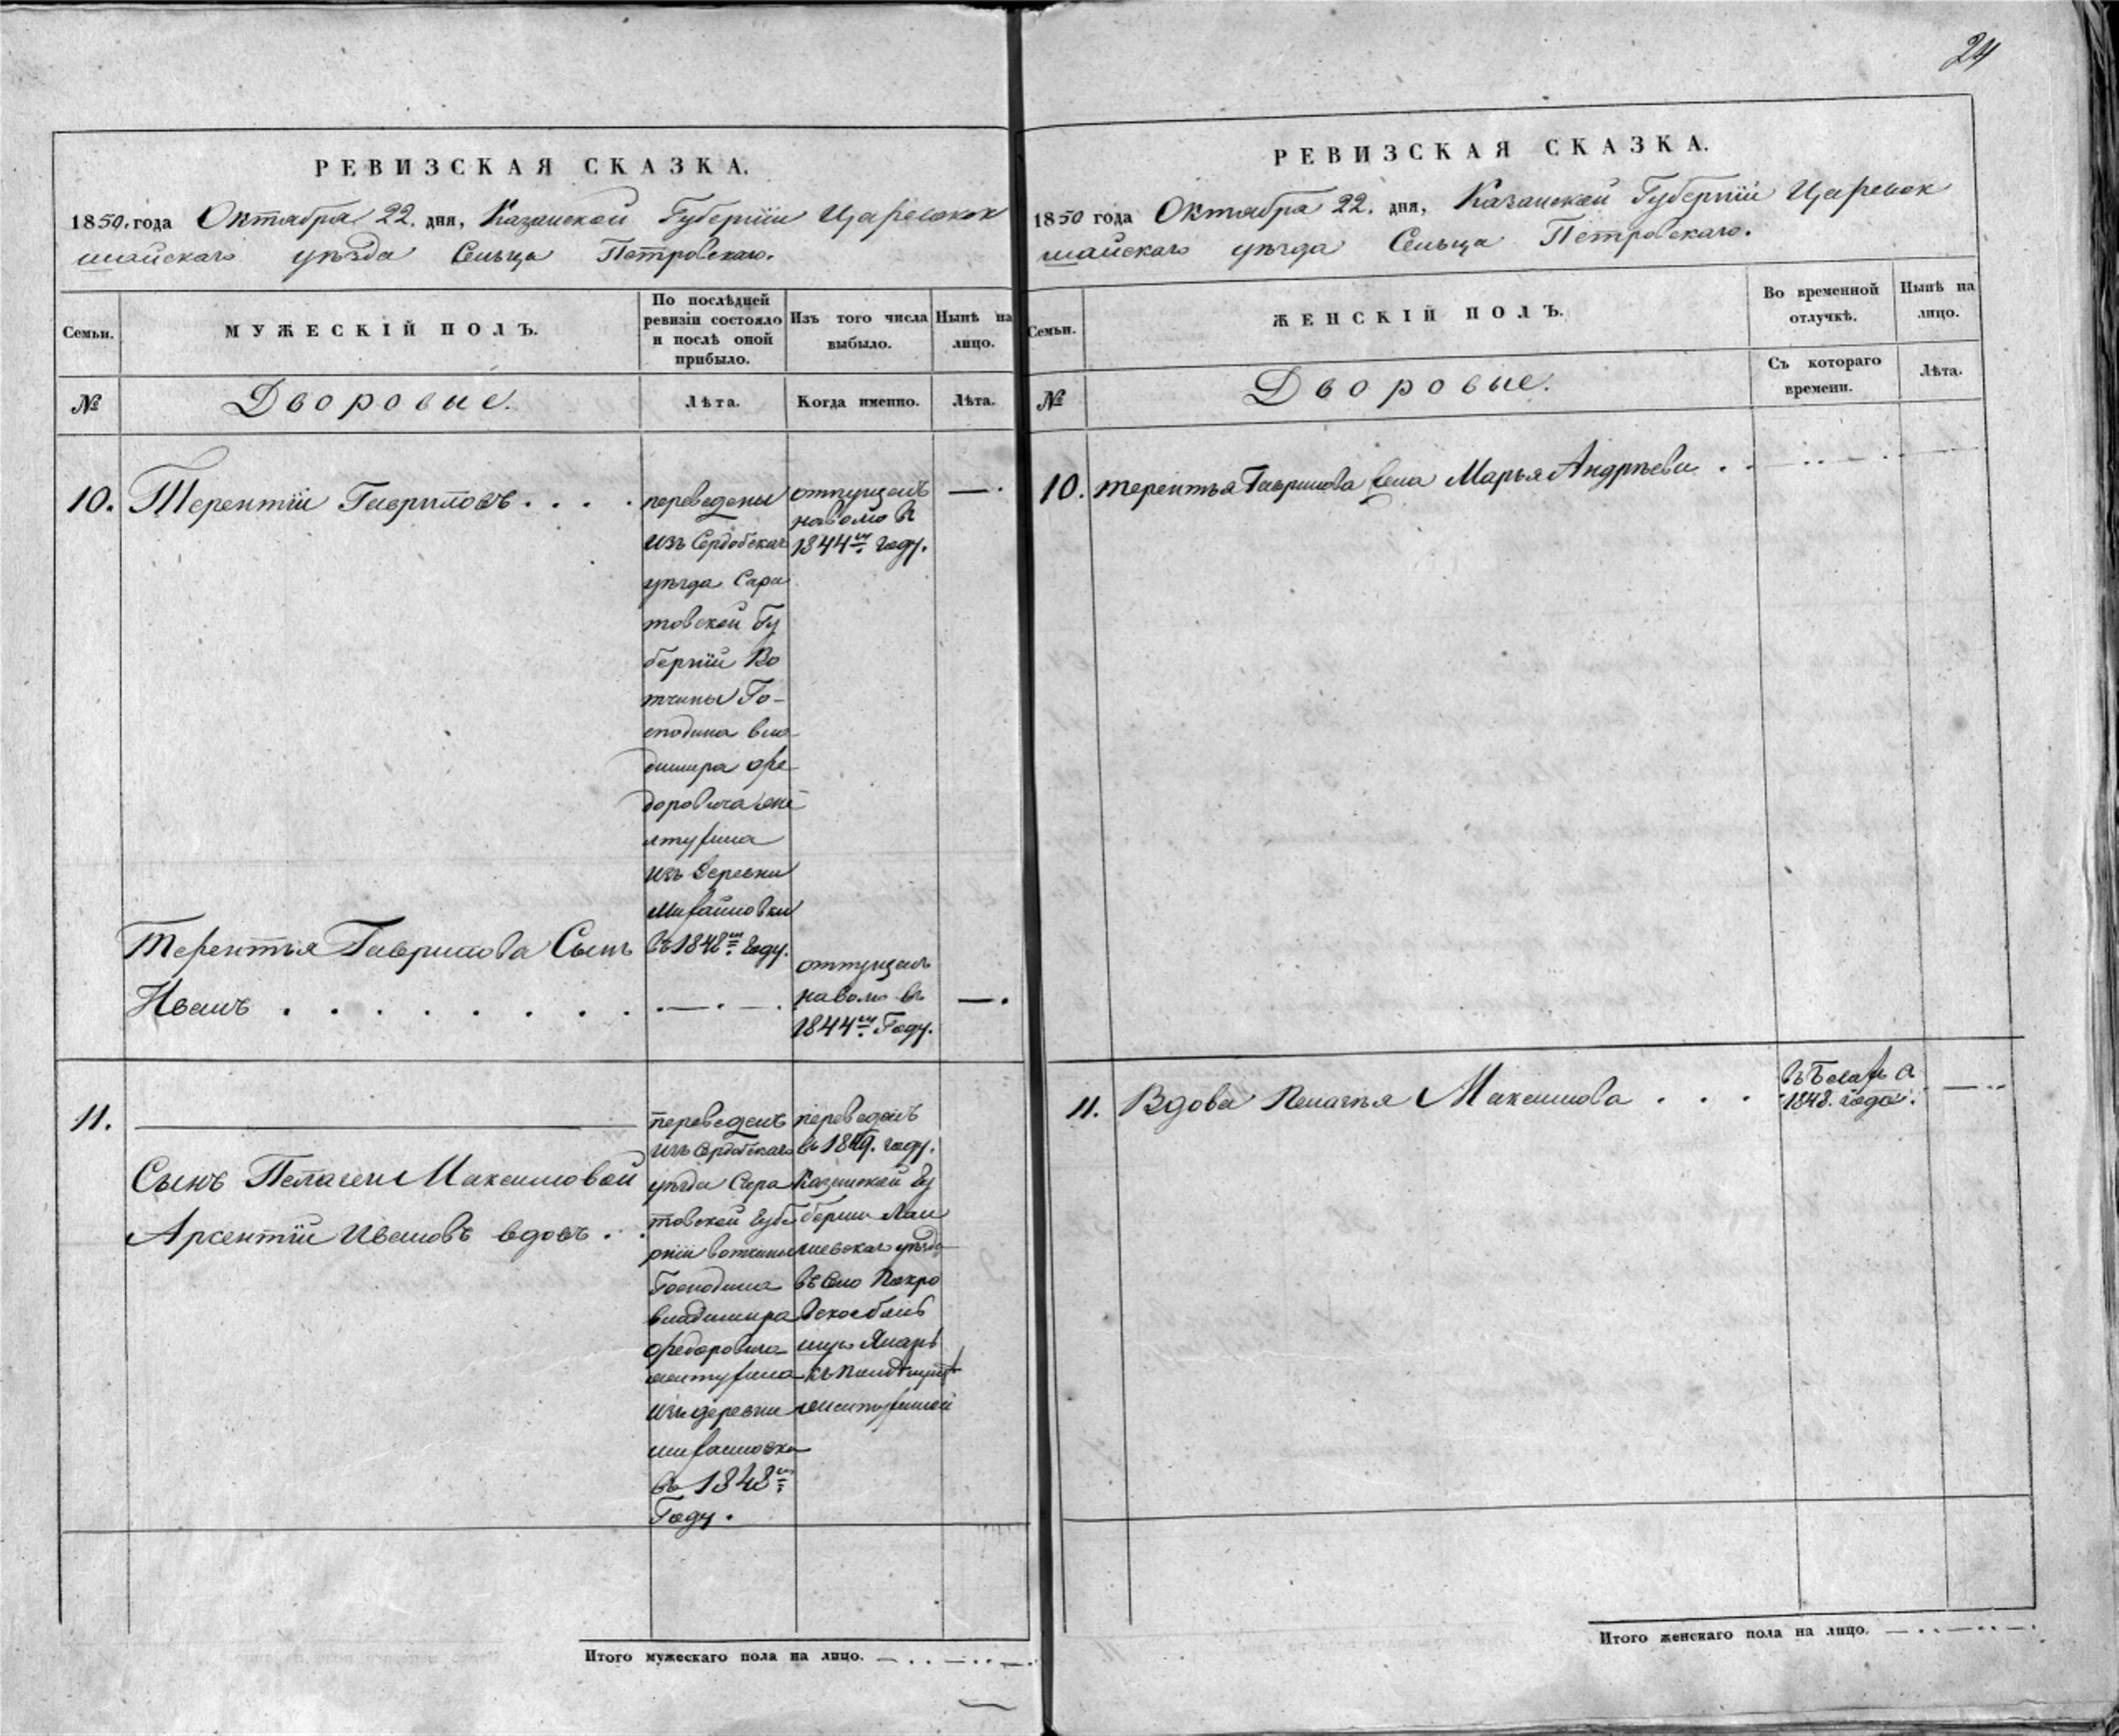 24
РЕВИЗСКАЯ СКАЗКА.
1850. года Октября 22. дня, Казанской Губернiи Царевокок
шайскаго уѣзда Сельца Петровскаго.
Семьи.
МУЖЕСКIЙ ПОЛЪ.
По послѣдней
ревизiи состояло
и послѣ оной
прибыло.
Изъ того числа
выбыло.
Нынѣ на
лицо.
№
Дворовые.
Лѣта.
Когда именно.
Лѣта.
10. Терентiй Гавриловъ . . . .
переведены
изъ Сердобскаго
уѣзда Сара
товской Гу
бернiи Во
тчины Го-
сподина вла
димира Фе
доровича
из деревни
Михайловки
въ 1848м. Году.
отпущенъ
наволю в
1844м. Году.
— .
Терентья Гаврилова Сынъ
Иванъ . . . . . . . .
. — . — .
отпущенъ
наволю въ
1844м. Году.
— .
11.
Сынъ Пелагеи Максимовой
Арсентiй Ивановъ вдовъ . .
переведенъ
изъ Сердобскаго
уѣзда Сара
товской Губе
рнiи вотчины
Господина
владимира
Федоровича
изъ деревни
михайловка
въ 1848м.
Году.
переведенъ
въ 1849. году.
Казанской Гу
бернiи Лаи
шевскаго уѣзда
въ село Покро
вское
Итого мужескаго пола на лицо. — . . — . . — .
РЕВИЗСКАЯ СКАЗКА.
1850 года Октября 22. дня, Казанской Губернiи Царевок
шайскаго уѣзда Сельца Петровскаго.
Семьи.
ЖЕНСКIЙ ПОЛЪ.
Во временной
отлучкѣ.
Нынѣ на
лицо.
№
Дворовые.
Съ котораго
времени.
Лѣта.
10. терентья Гаврилова жена Марья Андрѣева . .
11. Вдова Пелагья Максимова . . .
1848. года.
Итого женскаго пола на лицо. — . . — . . — .